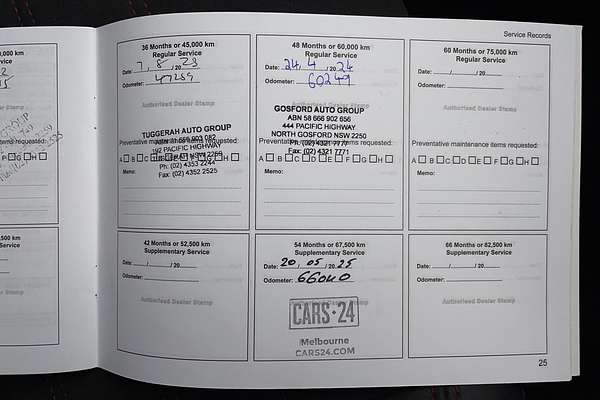 Service Records
0,000 km
Service
items requested:
F G H
,500 km
Service
36 Months or 45,000 km
Regular Service
Date: 7 / 8 / 20 23
Odometer: 47259
Authorised Dealer Stamp
TUGGERAH AUTO GROUP
192 PACIFIC HIGHWAY
Ph: (02) 4353 2244
Fax: (02) 4352 2525
Preventative maintenance items requested:
A B C D E F G H
Memo:
48 Months or 60,000 km
Regular Service
Date: 24 / 4 / 20 24
Odometer: 60249
GOSFORD AUTO GROUP
ABN 58 666 902 656
444 PACIFIC HIGHWAY
NORTH GOSFORD NSW 2250
Ph: (02) 4321 7777
Fax: (02) 4321 7771
Preventative maintenance items requested:
A B C D E F G H
Memo:
60 Months or 75,000 km
Regular Service
Date: / / 20
Odometer:
Authorised Dealer Stamp
Preventative maintenance items requested:
A B C D E F G H
Memo:
42 Months or 52,500 km
Supplementary Service
Date: / / 20
Odometer:
Authorised Dealer Stamp
54 Months or 67,500 km
Supplementary Service
Date: 20 / 05 / 20 25
Odometer: 66040
CARS·24
Melbourne
CARS24.COM
66 Months or 82,500 km
Supplementary Service
Date: / / 20
Odometer:
Authorised Dealer Stamp
25